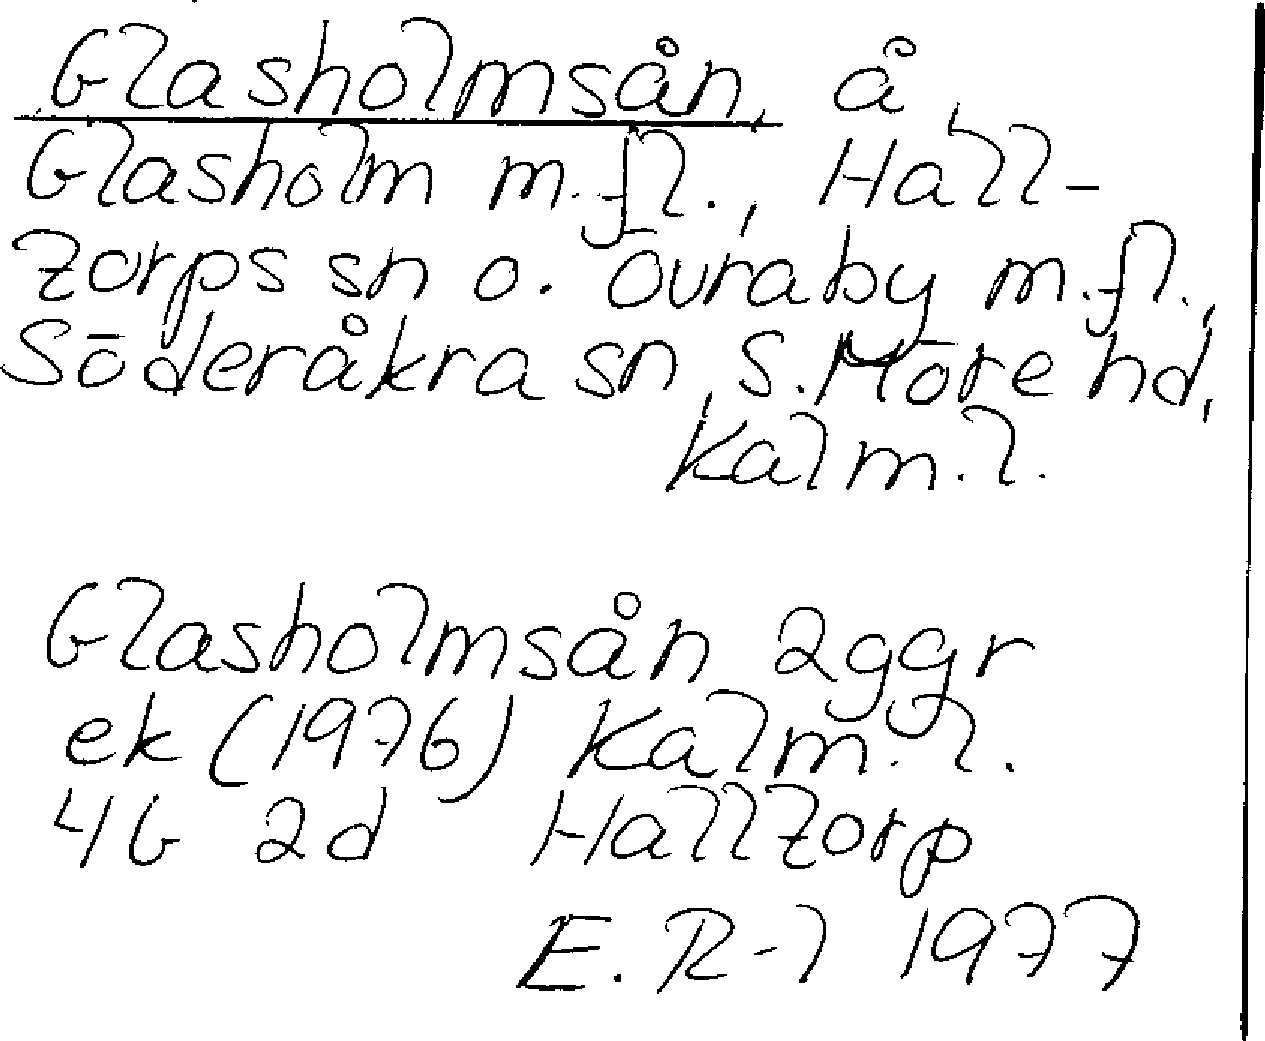 Glasholmsån, å,
Glasholm m.fl., Hall-
torps sn o. Övraby m.fl.,
Söderåkra sn, S. Möre hd,
Kalm. l.
Glasholmsån 2ggr
ek (1976) Kalm. l.
4G 2d Halltorp
E. R-l 1977